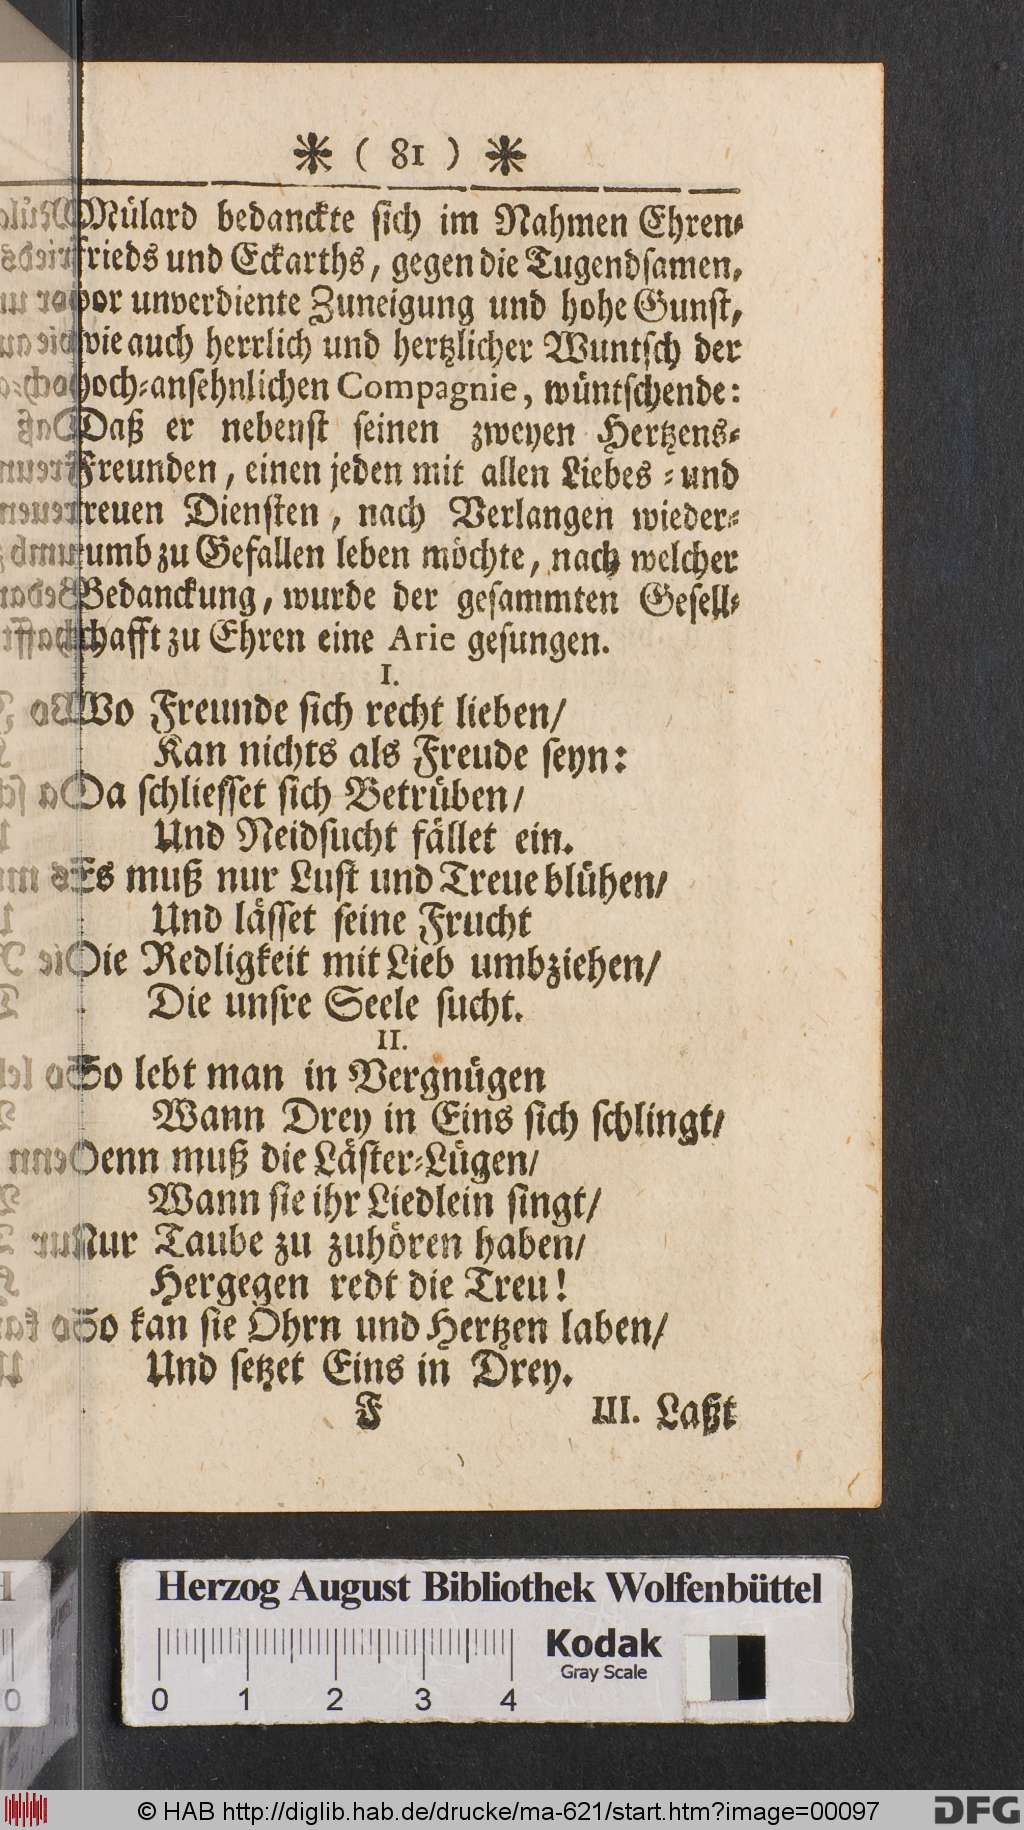 * ( 81 ) *
Mülard bedanckte sich im Nahmen Ehren-
frieds und Eckarths, gegen die Tugendsamen,
vor unverdiente Zuneigung und hohe Gunst,
wie auch herrlich und hertzlicher Wuntsch der
hoch-ansehnlichen Compagnie, wüntschende:
Daß er nebenst seinen zweyen Hertzens-
Freunden, einen jeden mit allen Liebes- und
treuen Diensten, nach Verlangen wieder-
umb zu Gefallen leben möchte, nach welcher
Bedanckung, wurde der gesammten Gesell-
schafft zu Ehren eine Arie gesungen.
I.
Wo Freunde sich recht lieben/
Kan nichts als Freude seyn:
Da schliesset sich Betrüben/
Und Neidsucht fället ein.
Es muß nur Lust und Treue blühen/
Und lässet seine Frucht
Die Redligkeit mit Lieb umbziehen/
Die unsre Seele sucht.
II.
So lebt man in Vergnügen
Wann Drey in Eins sich schlingt/
Denn muß die Läster-Lügen/
Wann sie ihr Liedlein singt/
Nur Taube zu zuhören haben/
Hergegen redt die Treu!
So kan sie Ohrn und Hertzen laben/
Und setzet Eins in Drey.
F III. Laßt
Herzog August Bibliothek Wolfenbüttel
Kodak
Gray Scale
0 1 2 3 4
© HAB http://diglib.hab.de/drucke/ma-621/start.htm?image=00097
DFG